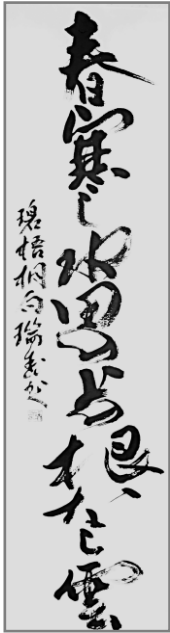 春寒し水田の上の根なし雲
碧梧桐句